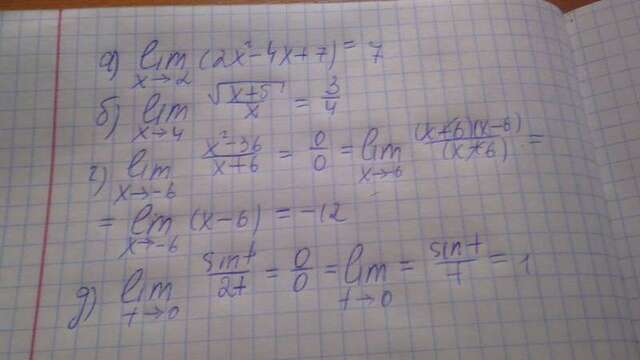 а) lim x→2 (2x²-4x+7) = 7
б) lim x→4 √(x+5)/x = 3/4
г) lim x→-6 (x²-36)/(x+6) = 0/0 = lim x→-6 ((x+6)(x-6))/(x+6) =
= lim x→-6 (x-6) = -12
д) lim t→0 sint/2t = 0/0 = lim t→0 = sint/t = 1